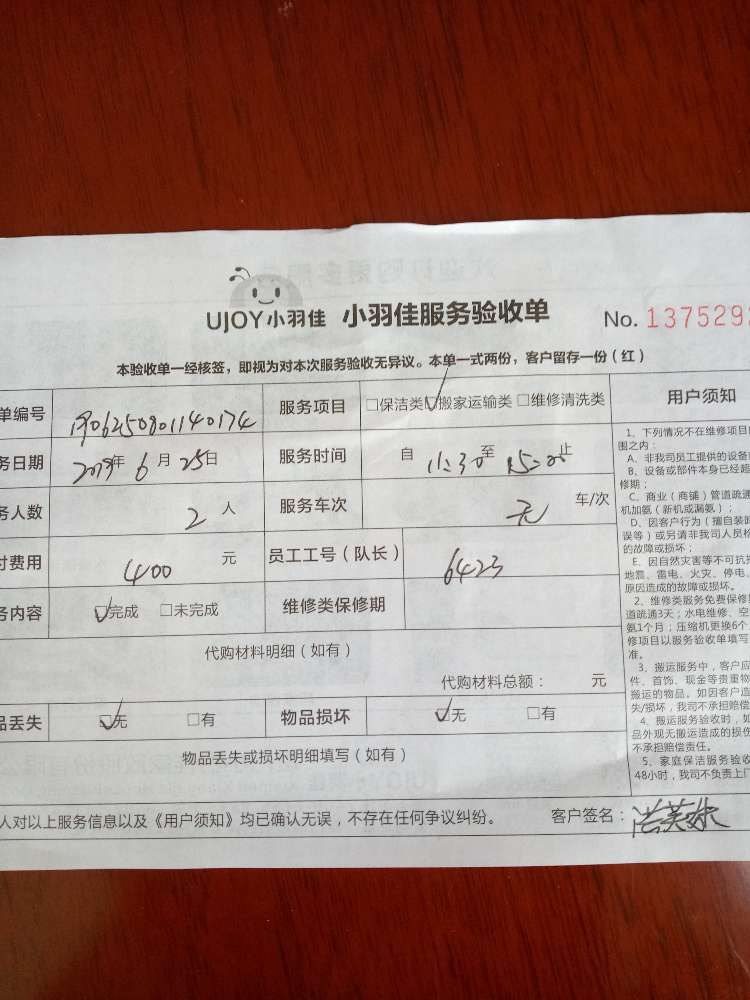 UJOY小羽佳 小羽佳服务验收单 No. 1375292
本验收单一经核签，即视为对本次服务验收无异议。本单一式两份，客户留存一份（红）
单编号 1906250801140174 服务项目 □保洁类 ☑搬家运输类 □维修清洗类 用户须知
务日期 2019年 6 月 25日 服务时间 自 11:30 至 15:00 止
务人数 2 人 服务车次 无 车/次
付费用 400 元 员工工号（队长） 6423
务内容 ☑完成 □未完成 维修类保修期
代购材料明细（如有）
代购材料总额： 元
品丢失 ☑无 □有 物品损坏 ☑无 □有
物品丢失或损坏明细填写（如有）
人对以上服务信息以及《用户须知》均已确认无误，不存在任何争议纠纷。 客户签名：
1、下列情况不在维修项目
围之内：
A、非我司员工提供的设备
B、设备或部件本身已经超
修期；
C、商业（商铺）管道疏通
机加氨（新机或漏氨）；
D、因客户行为（擅自装
误等）或另请非我司人员
的故障或损坏；
E、因自然灾害等不可抗
地震、雷电、火灾、停电、
原因造成的故障或损坏。
2、维修类服务免费保修
道疏通3天；水电维修、空
氨1个月；压缩机更换6个
修项目以服务验收单填写
准。
3、搬运服务中，客户应
件、首饰、现金等贵重物
搬运的物品。如因客户
失/损坏，我司不承担赔偿
4、搬运服务验收时，如
品外观无搬运造成的损
不承担赔偿责任。
5、家庭保洁服务验收
48小时，我司不负责上门